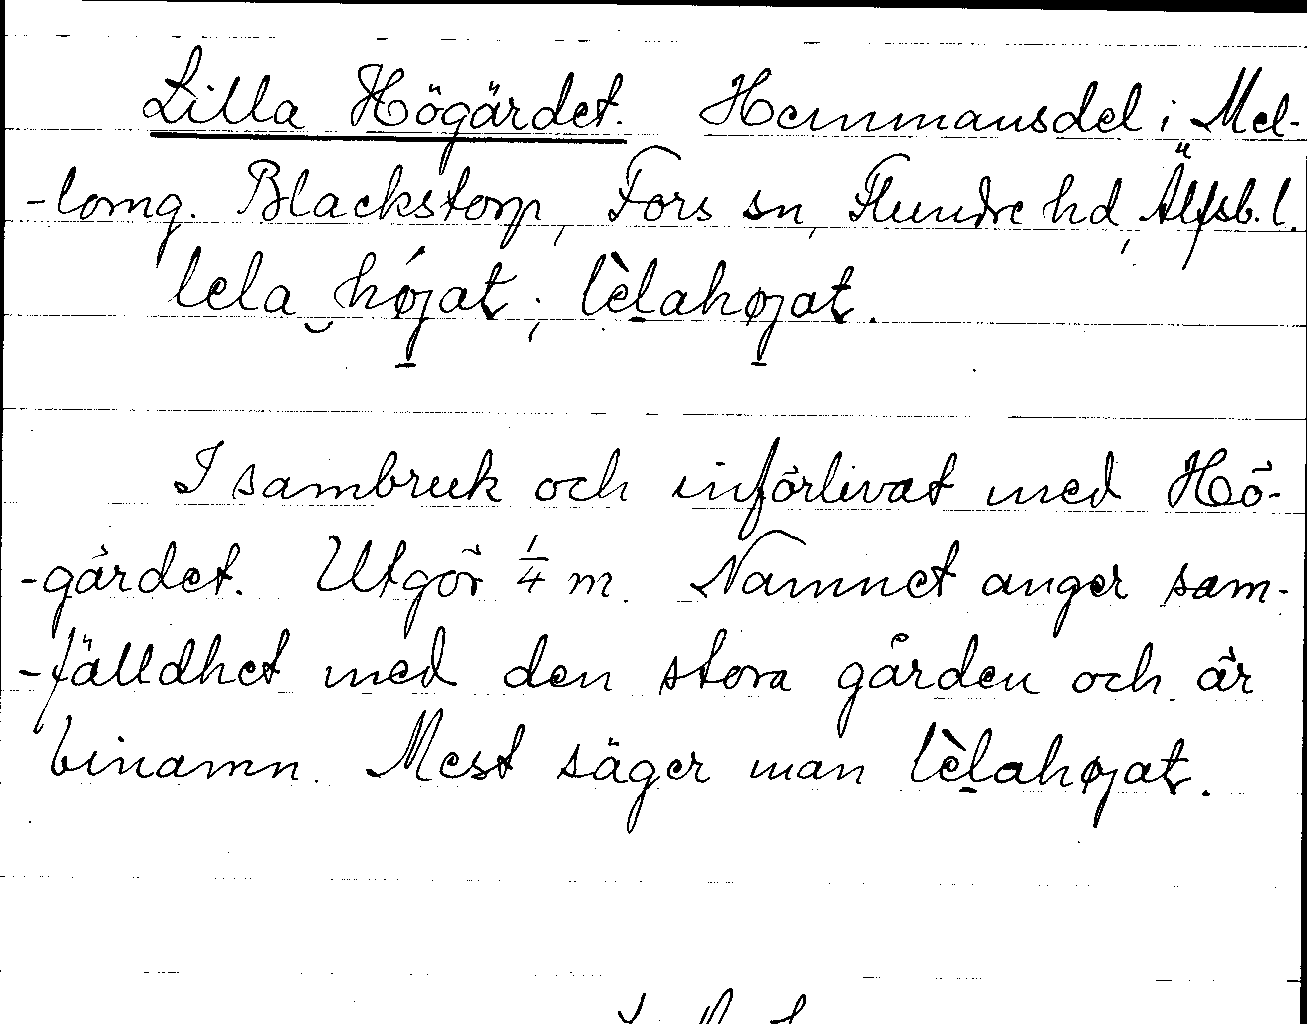 Lilla Högärdet. Hemmansdel i Mel-
-lomg. Blackstorp, Fors sn, Flundre hd, Älfsb. l.
lela‿hǿjat; lèlahøjat.
I sambruk och införlivat med Hö-
-gärdet. Utgör 1/4 m. Namnet anger sam-
-fälldhet med den stora gården och är
binamn. Mest säger man lèlahøjat.